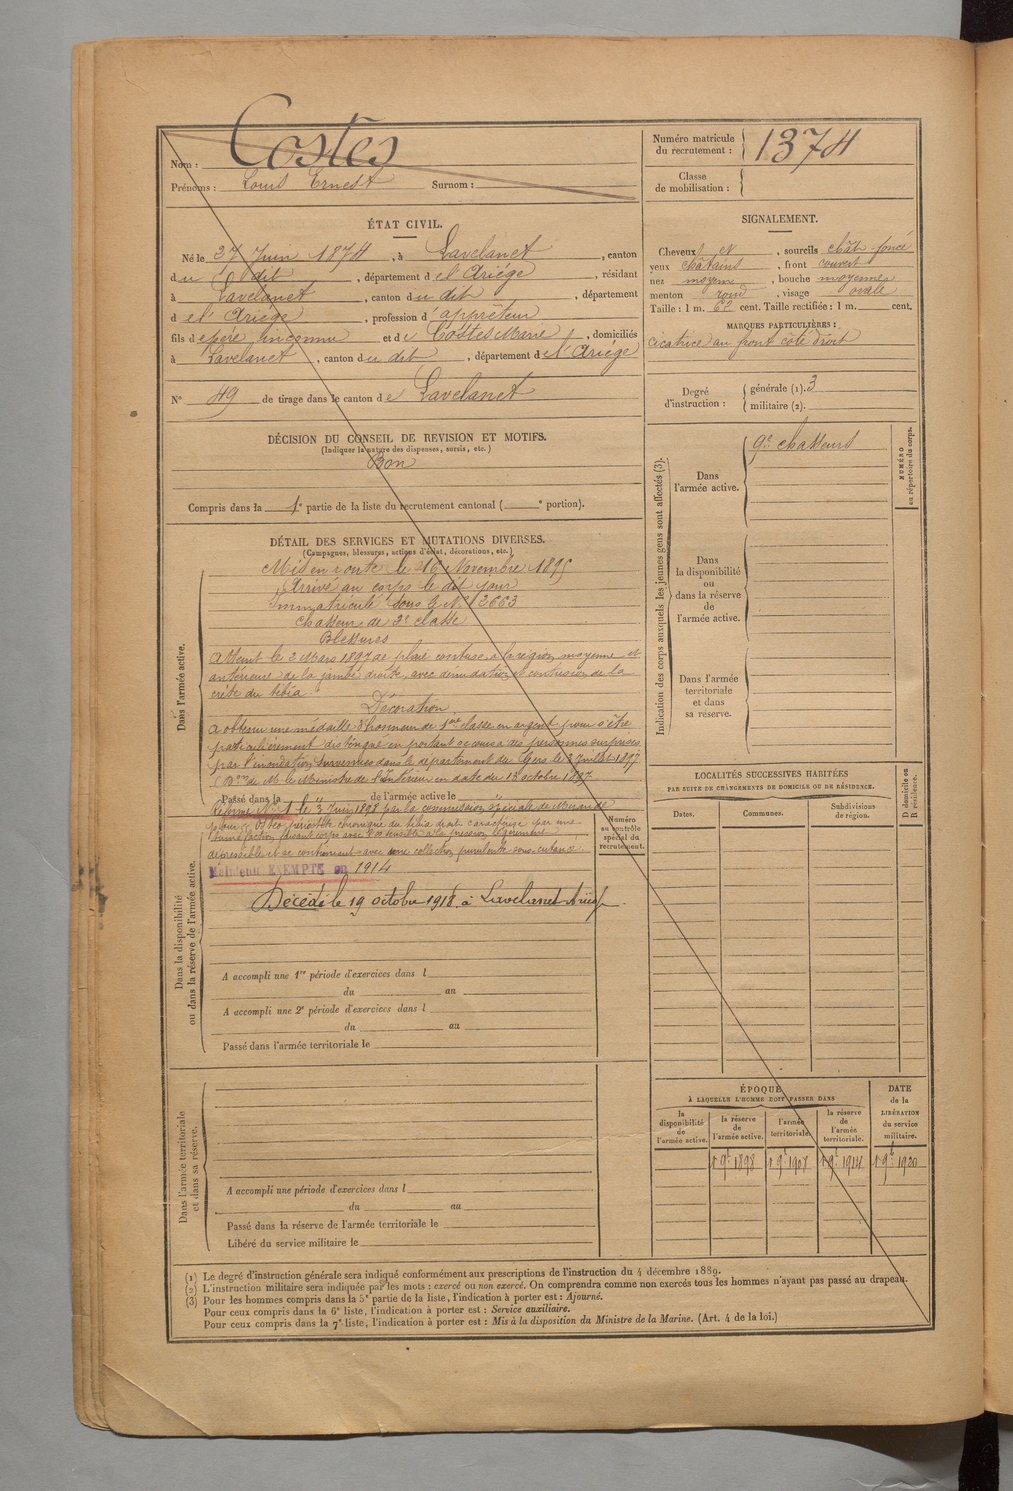 Nom : Costes
Prénoms : Louis Ernest Surnom :
Numéro matricule du recrutement : 1374
Classe de mobilisation :
ÉTAT CIVIL.
Né le 27 Juin 1874, à Lavelanet, canton
du dit, département de l'Ariége, résidant
à Lavelanet, canton du dit, département
de l'Ariége, profession d'apprêteur
fils de père inconnu et de Costes Marie, domiciliés
à Lavelanet, canton du dit, département de l'Ariége
N° 49 de tirage dans le canton de Lavelanet
SIGNALEMENT.
Cheveux et, sourcils chât-foncé
yeux châtains, front couvert
nez moyen, bouche moyenne
menton rond, visage ovale
Taille : 1 m. 62 cent. Taille rectifiée : 1 m. cent.
MARQUES PARTICULIÈRES :
cicatrice au front côté droit
Degré d'instruction : générale (1). 3
militaire (2).
DÉCISION DU CONSEIL DE REVISION ET MOTIFS.
(Indiquer la nature des dispenses, sursis, etc.)
Bon
Compris dans la 1e partie de la liste du recrutement cantonal ( e portion).
Indication des corps auxquels les jeunes gens sont affectés (3).
Dans l'armée active.
9e chasseurs
NUMÉRO au répertoire du corps.
Dans la disponibilité ou dans la réserve de l'armée active.
Dans l'armée territoriale et dans sa réserve.
DÉTAIL DES SERVICES ET MUTATIONS DIVERSES.
(Campagnes, blessures, actions d'éclat, décorations, etc.)
Dans l'armée active.
Mis en route le 16 Novembre 1895
Arrivé au corps le dit jour
Immatriculé sous le N° 2663
Chasseur de 2e classe
Blessures
Atteint le 2 Mars 1897 de plaie contuse à la région moyenne et
antérieure de la jambe droite, avec dénudation et contusion de la
crête du tibia
Décoration
A obtenu une médaille d'honneur de 1ere classe en argent pour s'être
particulièrement distingué en portant secours à des personnes surprises
par l'inondation survenue dans le département du Gers le 3 Juillet 1897
(Don de M. le Ministre de l'Intérieur en date du 13 octobre 1897
Passé dans la de l'armée active le
Réformé N° 1 le 3 Juin 1898 par la commission spéciale de Mirande
pour : Ostéo périostite chronique du tibia droit caractérisé par une
tuméfaction faisant corps avec l'os sensible à la pression, légèrement
dépressible et se continuant avec une collection purulente sous cutané.
Maintenu EXEMPTÉ en 1914
Décédé le 19 octobre 1918 à Lavelanet Ariège
Numéro au contrôle spécial du recrutement.
Dans la disponibilité ou dans la réserve de l'armée active.
A accompli une 1re période d'exercices dans l
du au
A accompli une 2e période d'exercices dans l
du au
Passé dans l'armée territoriale le
LOCALITÉS SUCCESSIVES HABITÉES
PAR SUITE DE CHANGEMENTS DE DOMICILE OU DE RÉSIDENCE.
Dates. Communes. Subdivisions de région.
D domicile ou R résidence.
Dans l'armée territoriale et dans sa réserve.
A accompli une période d'exercices dans l
du au
Passé dans la réserve de l'armée territoriale le
Libéré du service militaire le
ÉPOQUE
À LAQUELLE L'HOMME DOIT PASSER DANS
la disponibilité de l'armée active.
la réserve de l'armée active.
l'armée territoriale.
la réserve de l'armée territoriale.
DATE de la LIBÉRATION du service militaire.
1 9e 1898 1 9e 1908 1 9e 1914 1 9e 1920
(1) Le degré d'instruction générale sera indiqué conformément aux prescriptions de l'instruction du 4 décembre 1889.
(2) L'instruction militaire sera indiquée par les mots : exercé ou non exercé. On comprendra comme non exercés tous les hommes n'ayant pas passé au drapeau.
(3) Pour les hommes compris dans la 5e partie de la liste, l'indication à porter est : Ajourné.
Pour ceux compris dans la 6e liste, l'indication à porter est : Service auxiliaire.
Pour ceux compris dans la 7e liste, l'indication à porter est : Mis à la disposition du Ministre de la Marine. (Art. 4 de la loi.)